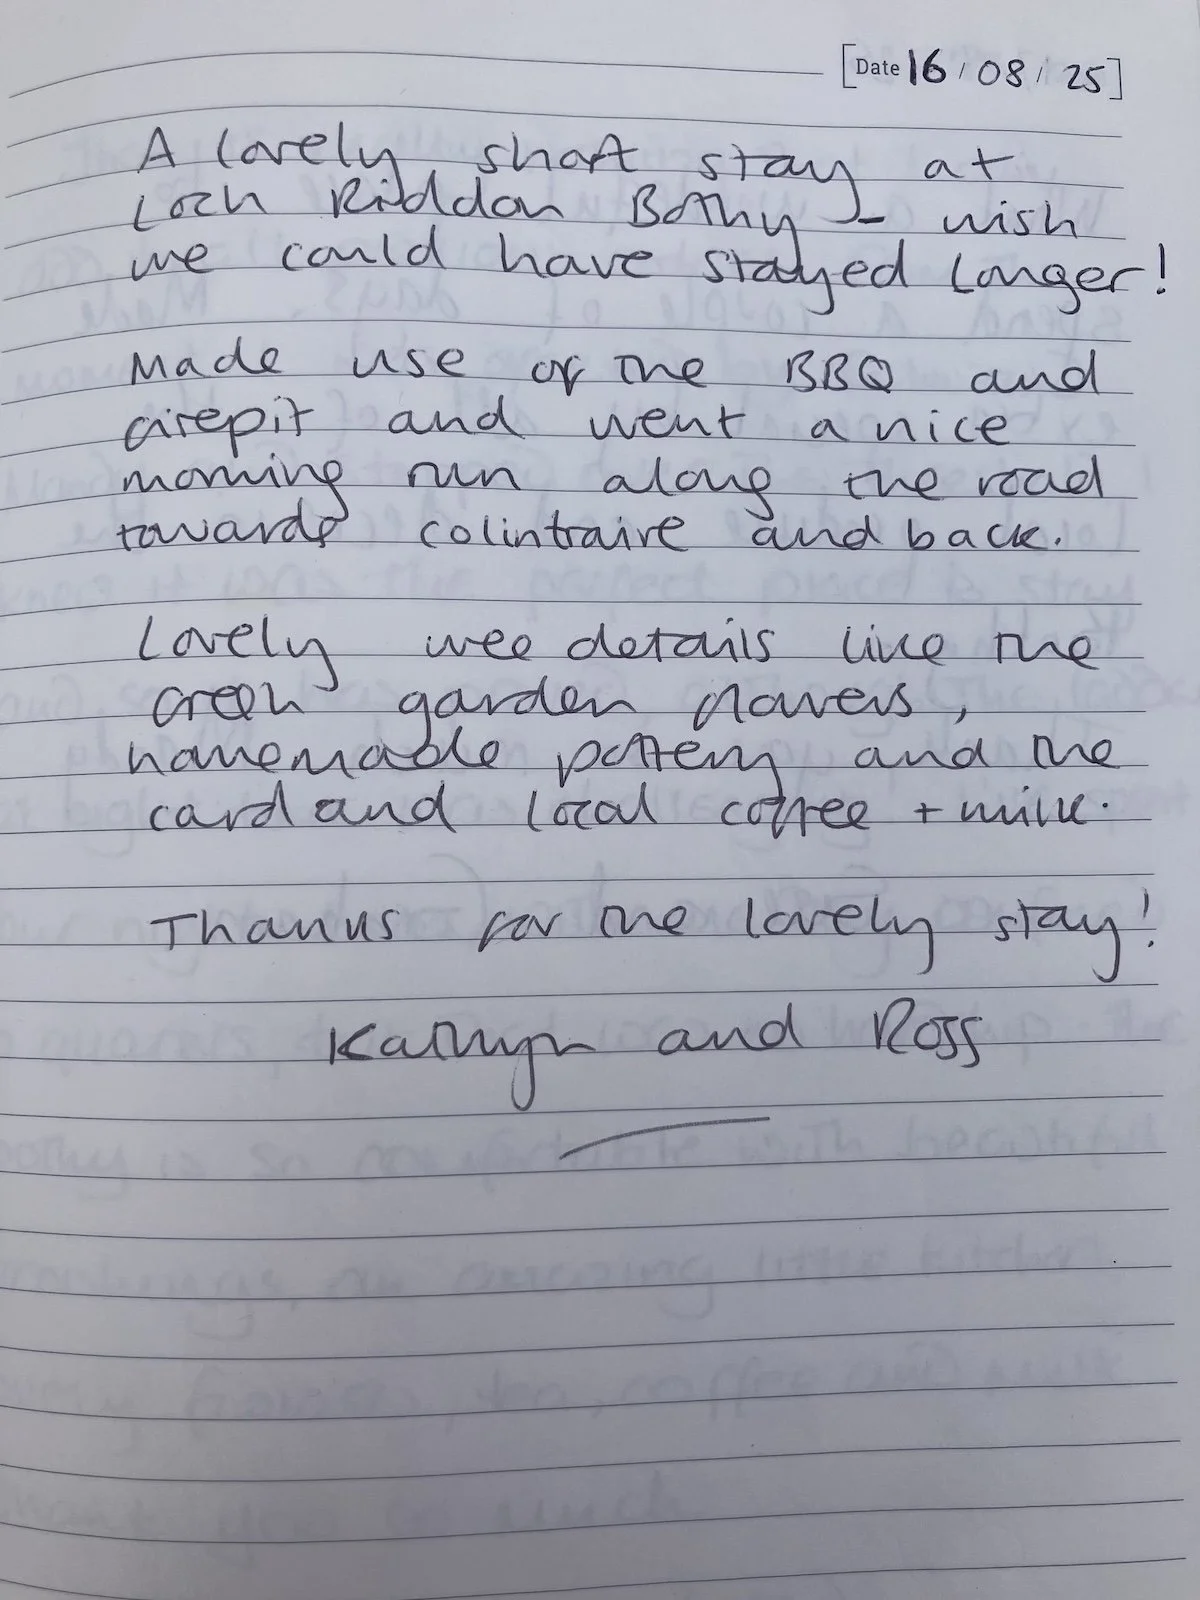 [Date 16 / 08 / 25]
A lovely short stay at
Loch Riddon Bothy - wish
we could have stayed longer!
Made use of the BBQ and
firepit and went a nice
morning run along the road
towards colintraive and back.
Lovely wee details like the
green garden flowers,
homemade pottery and the
card and local coffee + milk.
Thanks for the lovely stay!
Kathryn and Ross